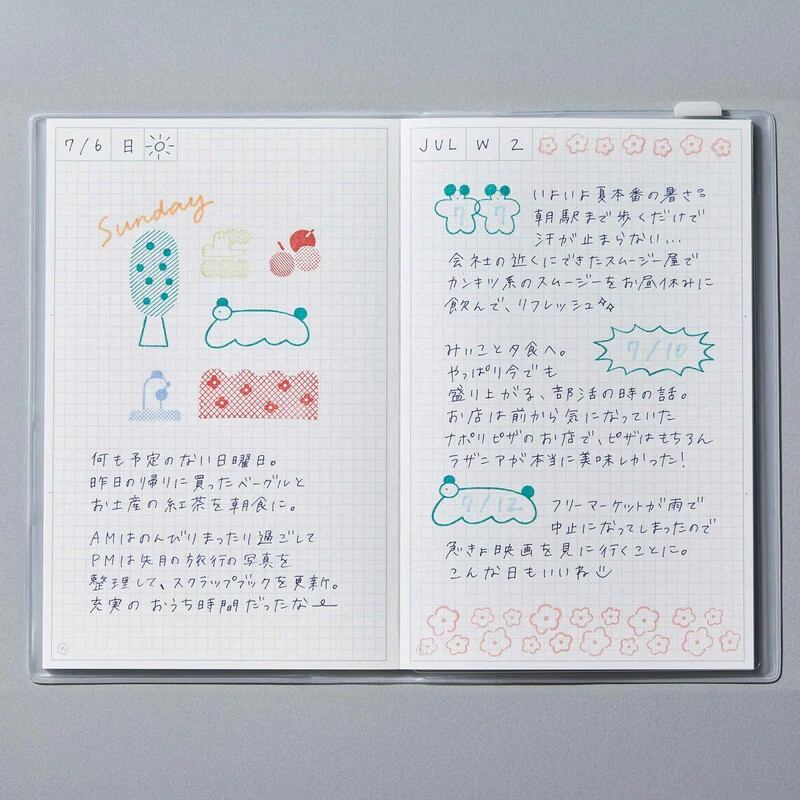 7/6 日
Sunday
何も予定のない日曜日。
昨日の帰りに買ったベーグルと
お土産の紅茶を朝食に。
AMはのんびりまったり過ごして
PMは先月の旅行の写真を
整理して、スクラップブックを更新。
充実の おうち時間だったな
JUL W 2
7 7
いよいよ夏本番の暑さ。
朝駅まで歩くだけで
汗が止まらない…
会社の近くにできたスムージー屋で
カンキツ系のスムージーをお昼休みに
飲んで、リフレッシュ
7/10
みぃこと夕食へ。
やっぱり今でも
盛り上がる、部活の時の話。
お店は前から気になっていた
ナポリピザのお店で、ピザはもちろん
ラザニアが本当に美味しかった!
7/12
フリーマーケットが雨で
中止になってしまったので
急きょ映画を見に行くことに。
こんな日もいいね